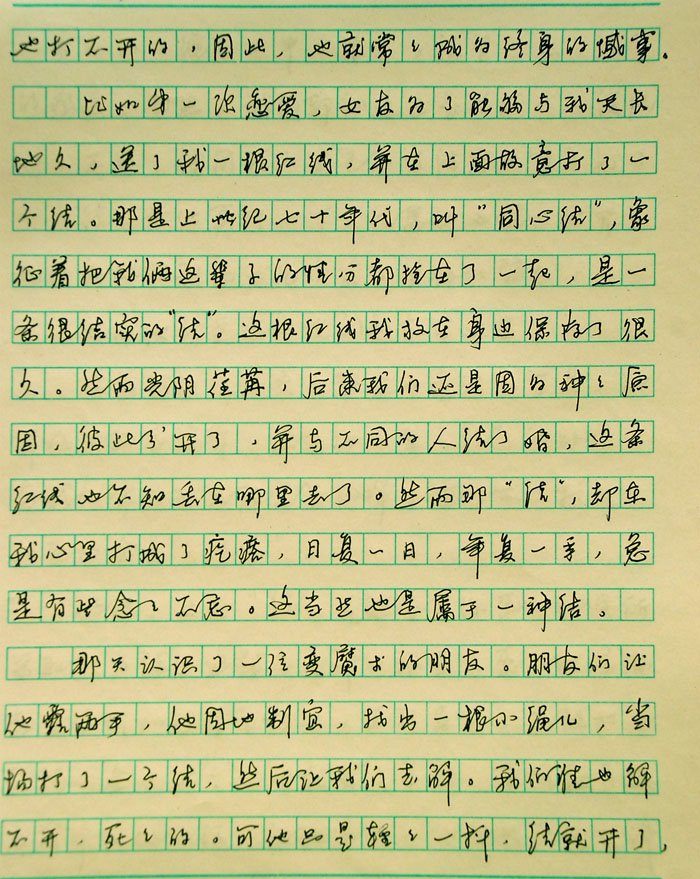 也打不开的，因此，也就常々成为终身的憾事。
比如第一次恋爱，女友为了能够与我天长
地久，送了我一根红线，并在上面故意打了一
个结。那是上世纪七十年代，叫“同心结”，象
征着把我俩这辈子的情分都拴在了一起，是一
条很结实的“结”。这根红线我放在身边保存了很
久。然而光阴荏苒，后来我们还是因为种々原
因，彼此分开了，并与不同的人结了婚，这条
红线也不知丢在哪里去了。然而那“结”，却在
我心里打成了疙瘩，日复一日，年复一年，总
是有些念々不忘。这当然也是属于一种结。
那天认识了一位变魔术的朋友。朋友们让
他露两手，他因地制宜，找出一根小绳儿，当
场打了一个结，然后让我们去解。我们谁也解
不开，死々的。可他只是轻々一抖，结就开了，